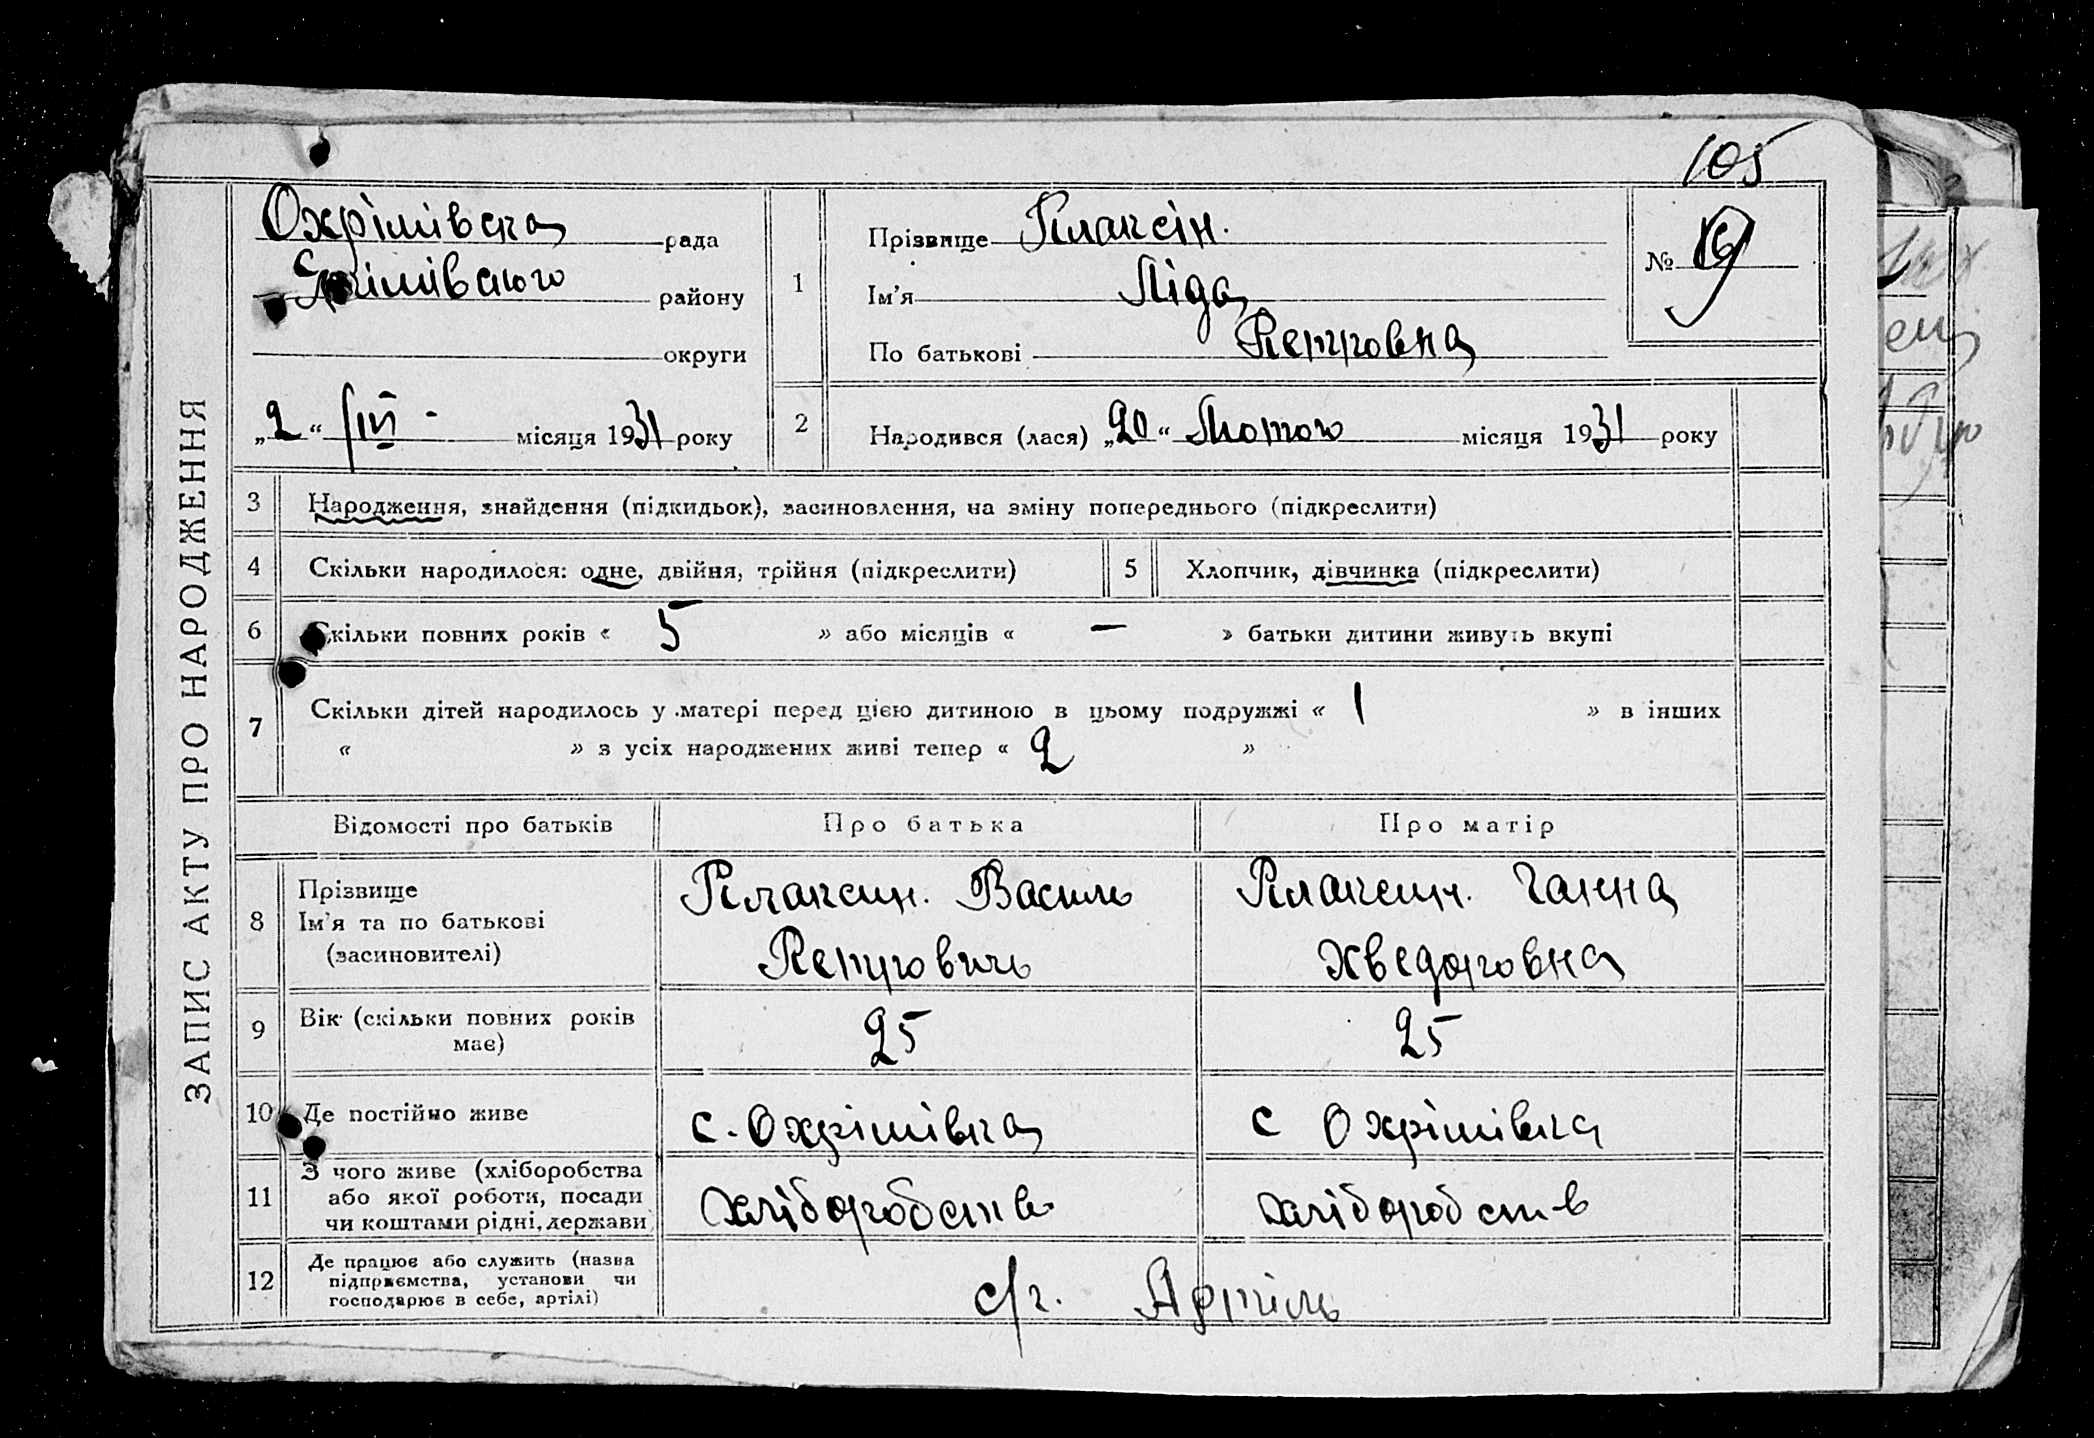 105
ЗАПИС АКТУ ПРО НАРОДЖЕННЯ
Охрімівска рада
Якімівського району
округи
„2“ III місяця 1931 року
1
Прізвище Плаксін.
Ім'я Ліда
По батькові Петровна
№ 19
2
Народився (лася) „20“ Лютого місяця 1931 року
3 Народження, знайдення (підкидьок), засиновлення, на зміну попереднього (підкреслити)
4 Скільки народилося: одне, двійня, трійня (підкреслити) 5 Хлопчик, дівчинка (підкреслити)
6 Скільки повних років « 5 » або місяців « — » батьки дитини живуть вкупі
7 Скільки дітей народилось у матері перед цією дитиною в цьому подружжі « 1 » в інших
« » з усіх народжених живі тепер « 2 »
Відомості про батьків Про батька Про матір
8 Прізвище
Ім'я та по батькові
(засиновителі)
Плаксин. Василь
Петровичь
Плаксин. Ганна
Хведоровна
9 Вік (скільки повних років
має)
25 25
10 Де постійно живе с. Охрімівка с Охрімівка
11 З чого живе (хліборобства
або якої роботи, посади
чи коштами рідні, держави
хліборобств хліборобств
12 Де працює або служить (назва
підприємства, установи чи
господарює в себе, артілі)
с/г. Артіль